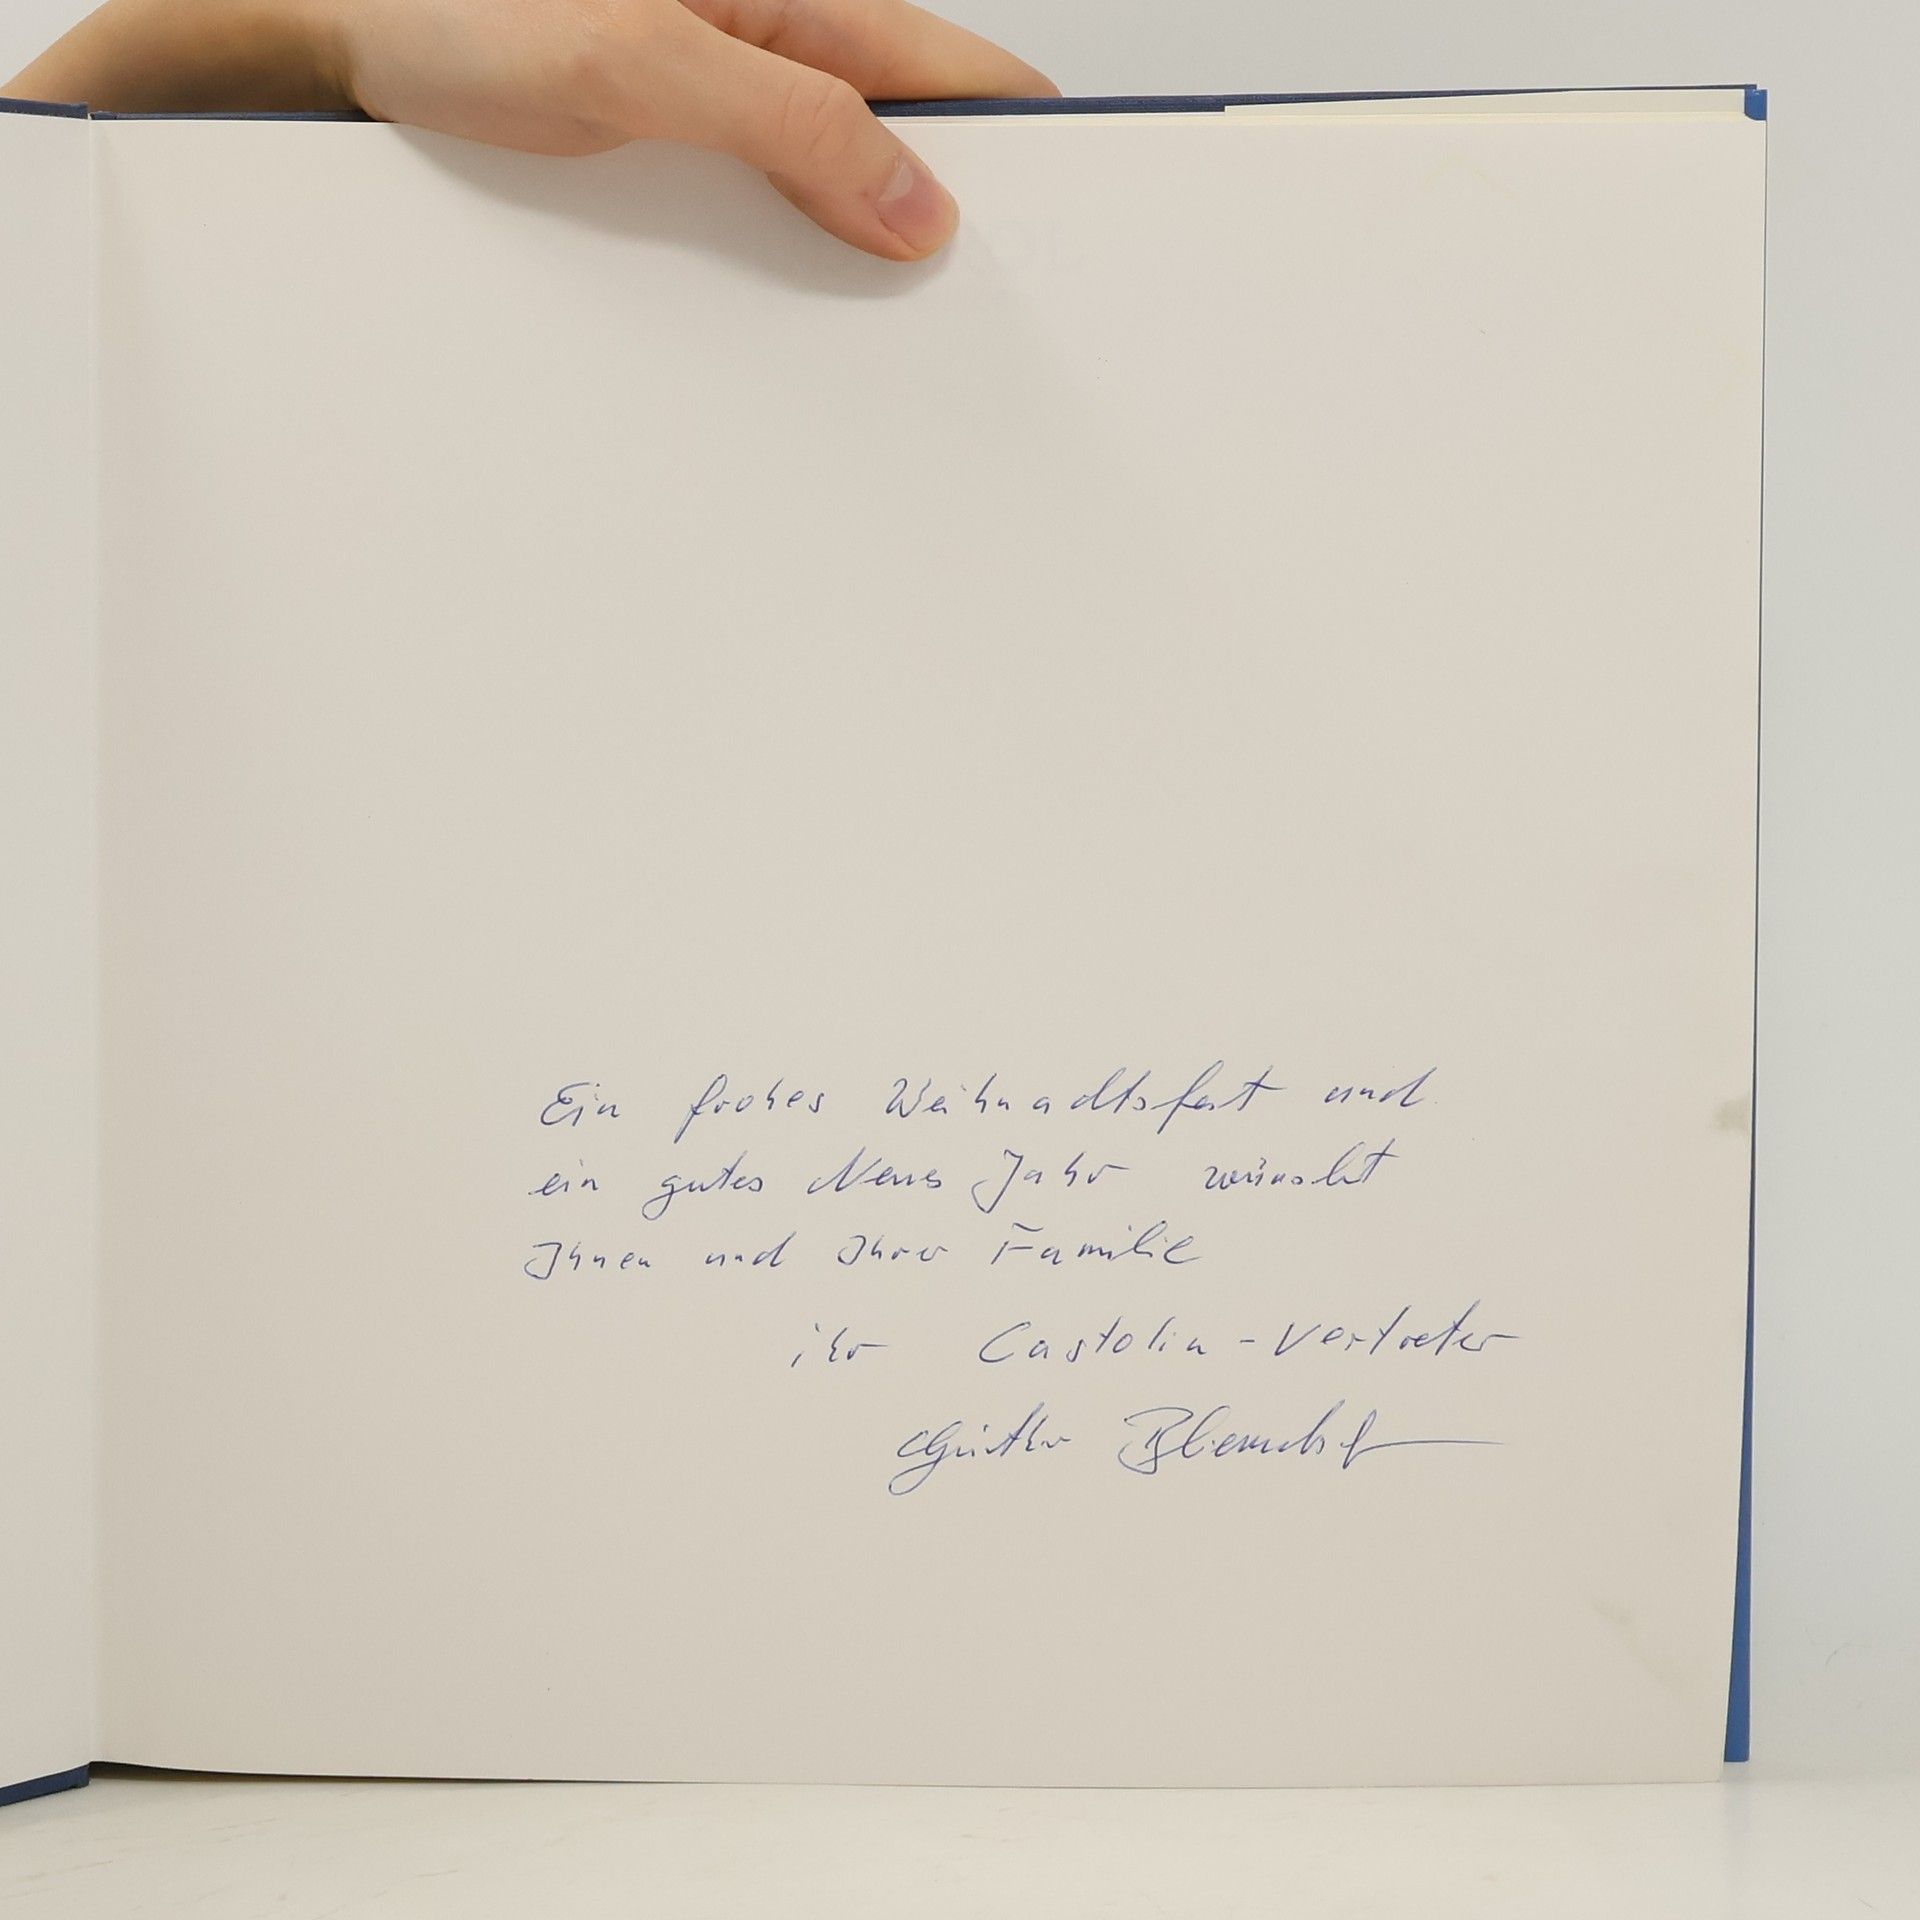 Ein frohes Weihnachtsfest und
ein gutes Neues Jahr wünscht
Ihnen und Ihrer Familie
ihr Castolin-Vertreter
Günther